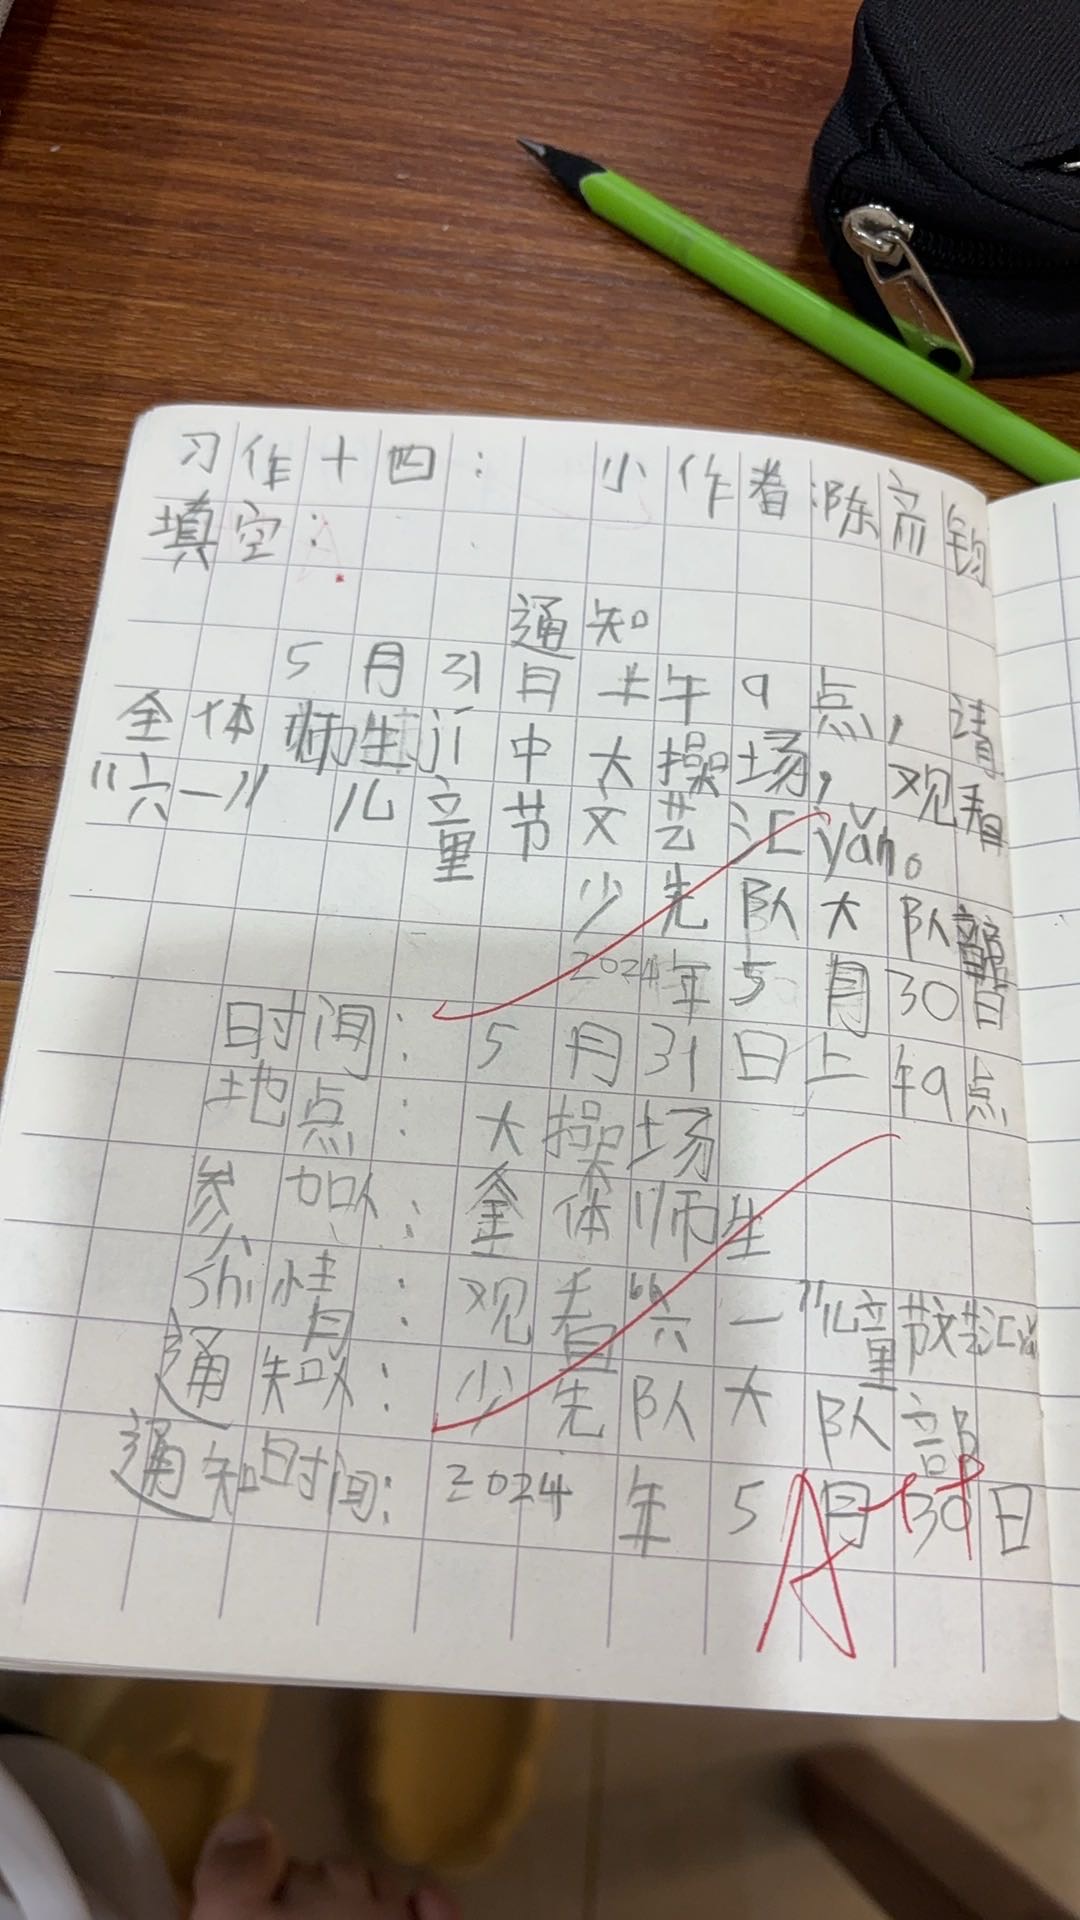 习作十四: 小作者
填空:
通知
5月31日上午9点,请
全体师生 中大操场,观看
"六一"儿童节文艺汇yǎn。
少先队大队部
2024年5月30日
时间: 5月31日上午9点
地点: 大操场
参加人: 全体师生
shi情: 观看"六一"儿童节文艺汇yǎn
通知人: 少先队大队部
通知时间: 2024年5月30日
A+